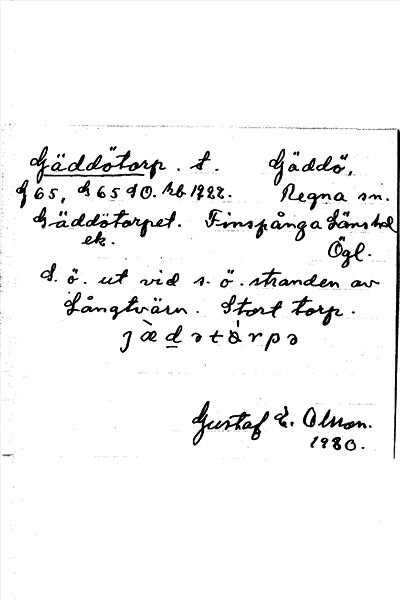 Gäddötorp. t. Gäddö,
G 65, G 65 40. kb 1922. Regna sn.
Gäddötorpet. Finspånga Länshd
ek. Ögl.
S. ö. ut vid s. ö. stranden av
Långtvärn. Stort torp.
Gustaf E. Olsson.
1980.